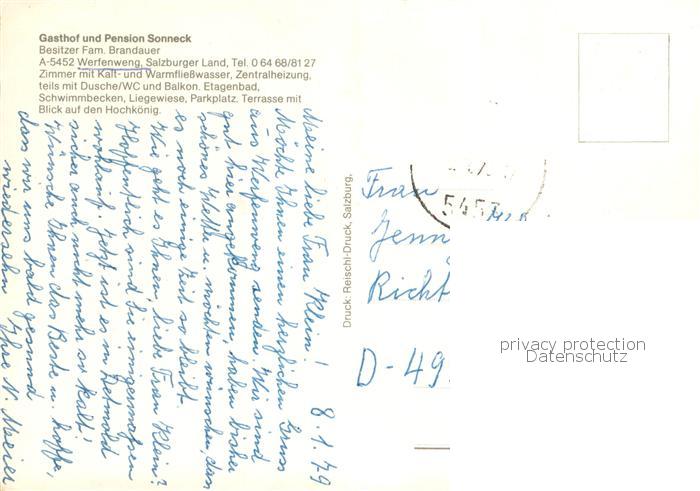 Gasthof und Pension Sonneck
Besitzer Fam. Brandauer
A-5452 Werfenweng, Salzburger Land, Tel. 0 64 68/81 27
Zimmer mit Kalt- und Warmfließwasser, Zentralheizung,
teils mit Dusche/WC und Balkon. Etagenbad,
Schwimmbecken, Liegewiese, Parkplatz. Terrasse mit
Blick auf den Hochkönig.
8.1.79
Meine liebe Frau Klein!
Möchte Ihnen einen herzlichen Gruss
aus Werfenweng senden. Wir sind
gut hier angekommen, haben bisher
schönes Wetter u. möchten wünschen, dass
es noch einige Zeit so bleibt.
Wie geht es Ihnen, liebe Frau Klein?
Hoffentlich sind Sie einigermaßen
wohlauf. Jetzt ist es in Detmold
sicher auch nicht mehr so kalt!
Wünsche Ihnen das Beste u. hoffe,
dass wir uns bald gesund
wiedersehn Ihre N. Meier
Druck: Reischl-Druck, Salzburg,
Frau
Jenn
Richt
D-49
privacy protection
Datenschutz